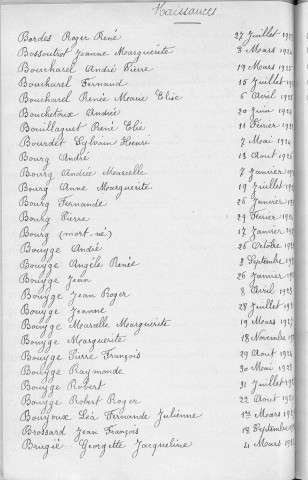 Naissances
Bordes Roger René 27 Juillet
Bossoutrot Jeanne Marguerite 3 Mars
Bourcharel André Pierre 19 Mars
Boucharel Fernand 15 Juillet
Boucharel Renée Marie Elise 6 Avril
Bouchetoux Andrée 20 Juin
Bouillaguet René Elie 21 Février
Bourdet Sylvain Henri 7 Mai
Bourg André 13 Aout
Bourg Andrée Marielle 7 Janvier
Bourg Anne Marguerite 19 Juillet
Bourg Fernande 26 Janvier
Bourg Pierre 29 Février
Bourg (mort-né) 17 Janvier
Bouyge André 26 Octobre
Bouyge Angèle Renée 2 Septembre
Bouyge Jean 26 Janvier
Bouyge Jean Roger 8 Avril
Bouyge Jeanne 28 Juillet
Bouyge Marcelle Marguerite 19 Mars
Bouyge Marguerite 18 Novembre
Bouyge Pierre François 29 Aout
Bouyge Raymonde 30 Mai
Bouyge Robert 31 Juillet
Bouyge Robert Roger 22 Aout
Boujoux Léa Fernande Julienne Mars
Brossard Jean François 18 Septembre
Brugié Georgette Jacqueline 4 Mars